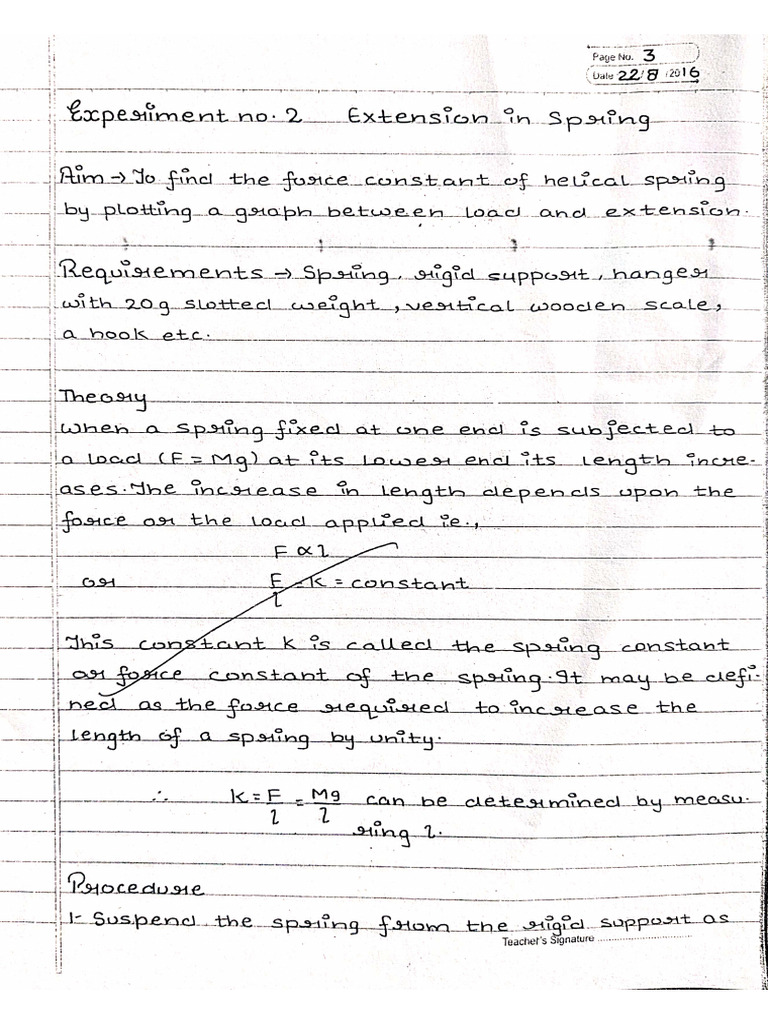 Page No. 3
Date 22/8/2016
Experiment no. 2 Extension in Spring
Aim → To find the force constant of helical spring
by plotting a graph between load and extension.
Requirements → Spring, rigid support, hanger
with 20g slotted weight, vertical wooden scale,
a hook etc.
Theory
When a spring fixed at one end is subjected to
a load (F = Mg) at its lower end its length incre-
ases. The increase in length depends upon the
force or the load applied ie.,
F ∝ l
or F/l = K = constant
This constant K is called the spring constant
or force constant of the spring. It may be defi-
ned as the force required to increase the
length of a spring by unity.
∴ K = F/l = Mg/l can be determined by measu-
ring l.
Procedure
1- Suspend the spring from the rigid support as
Teacher's Signature